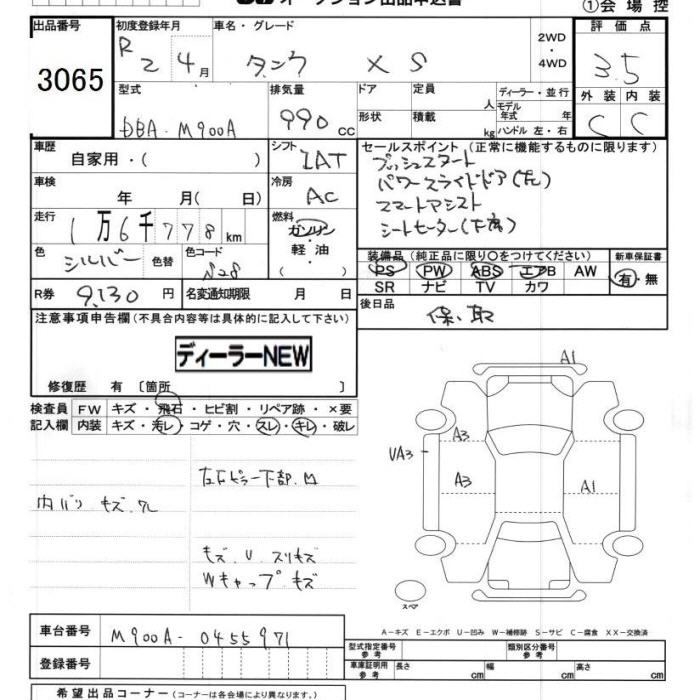 オークション出品申込書
①会場控
出品番号 3065
初度登録年月 R 2 4月
車名・グレード タンク X S
2WD・4WD
評価点 3.5
外装 C 内装 C
型式 DBA-M900A
排気量 990 cc
ドア 形状
定員 人 積載 kg
ディーラー・並行
モデル年式 年
ハンドル 左・右
車歴 自家用・( )
シフト IAT
セールスポイント (正常に機能するものに限ります)
プッシュスタート
パワースライドドア(左)
スマートアシスト
シートヒーター(下席)
車検 年 月( 日)
冷房 AC
走行 1万6千778km
燃料 ガソリン・軽油・( )
色 シルバー 色替
色コード S28
装備品 (純正品に限り○をつけてください)
新車保証書
PS PW ABS エアB AW
有・無
SR ナビ TV カワ
R券 9,130 円
名変通知期限 月 日
後日品 保、取
注意事項申告欄(不具合内容等は具体的に記入して下さい)
ディーラーNEW
修復歴 有〔箇所 〕
検査員記入欄
FW キズ・飛石・ヒビ割・リペア跡・×要
内装 キズ・汚レ・コゲ・穴・スレ・キレ・破レ
左右ピラー下部 M
内バリ キズ クレ
キズ.U.スリキズ
Wキャップキズ
A1
A3
UA3
A3
A1
スペア
A-キズ E-エクボ U-凹み W-補修跡 S-サビ C-腐食 XX-交換済
車台番号 M900A-0455971
登録番号
型式指定番号 参考
類別区分番号 参考
車庫証明用 参考 長さ cm 幅 cm 高さ cm
希望出品コーナー (コーナーは各会場により異なります。)